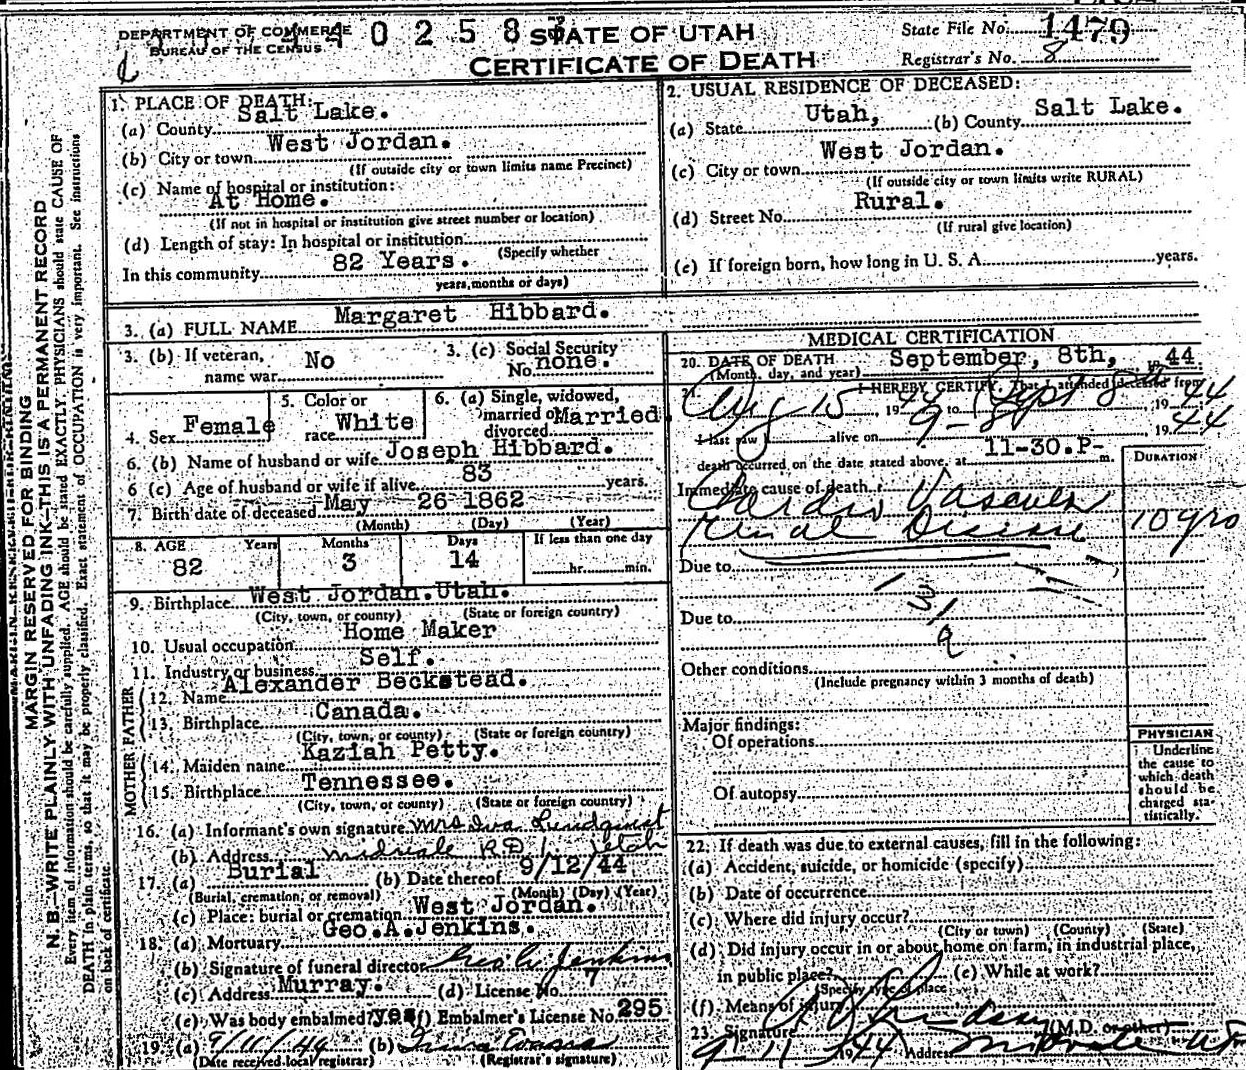 DEPARTMENT OF COMMERCE
BUREAU OF THE CENSUS
0 2 5 8
STATE OF UTAH
CERTIFICATE OF DEATH
State File No. 1479
Registrar's No. 8
MARGIN RESERVED FOR BINDING
N. B.—WRITE PLAINLY WITH UNFADING INK—THIS IS A PERMANENT RECORD
Every item of information should be carefully supplied. AGE should be stated EXACTLY PHYSICIANS should state CAUSE OF
DEATH in plain terms, so that it may be properly classified. Exact statement of OCCUPATION is very important. See instructions
on back of certificate.
1. PLACE OF DEATH:
(a) County Salt Lake.
(b) City or town West Jordan.
(If outside city or town limits name Precinct)
(c) Name of hospital or institution:
At Home.
(If not in hospital or institution give street number or location)
(d) Length of stay: In hospital or institution
(Specify whether
In this community 82 Years.
years, months or days)
2. USUAL RESIDENCE OF DECEASED:
(a) State Utah, (b) County Salt Lake.
(c) City or town West Jordan.
(If outside city or town limits write RURAL)
(d) Street No. Rural.
(If rural give location)
(e) If foreign born, how long in U. S. A. years.
3. (a) FULL NAME Margaret Hibbard.
3. (b) If veteran, name war No
3. (c) Social Security No. none.
4. Sex Female
5. Color or race White
6. (a) Single, widowed, married or divorced Married.
6. (b) Name of husband or wife Joseph Hibbard.
6 (c) Age of husband or wife if alive 83 years.
7. Birth date of deceased May 26 1862
(Month) (Day) (Year)
8. AGE Years Months Days If less than one day
82 3 14 hr. min.
9. Birthplace West Jordan.Utah.
(City, town, or county) (State or foreign country)
10. Usual occupation Home Maker
11. Industry or business Self.
FATHER
12. Name Alexander Beckstead.
13. Birthplace Canada.
(City, town, or county) (State or foreign country)
MOTHER
14. Maiden name Kaziah Petty.
15. Birthplace Tennessee.
(City, town, or county) (State or foreign country)
16. (a) Informant's own signature Mrs Iva Lundquist
(b) Address Midvale RD 1. Utah
17. (a) Burial (b) Date thereof 9/12/44
(Burial, cremation, or removal) (Month) (Day) (Year)
(c) Place: burial or cremation West Jordan.
18. (a) Mortuary Geo.A.Jenkins.
(b) Signature of funeral director Geo A Jenkins
(c) Address Murray. (d) License No. 7
(e) Was body embalmed? yes (f) Embalmer's License No. 295
19. (a) 9/11/44 (b)
(Date received local registrar) (Registrar's signature)
MEDICAL CERTIFICATION
20. DATE OF DEATH September, 8th, 1944
(Month, day, and year)
21. I HEREBY CERTIFY, That I attended deceased from
Aug 15, 1944 to Sept 8, 1944
I last saw alive on 9-8, 1944
death occurred on the date stated above, at 11-30.P. m.
DURATION
Immediate cause of death
Cardio Vascular
Renal Disease 10 yrs
Due to
131
Due to
a
Other conditions
(Include pregnancy within 3 months of death)
Major findings:
Of operations
Of autopsy
PHYSICIAN
Underline
the cause to
which death
should be
charged sta-
tistically.
22. If death was due to external causes, fill in the following:
(a) Accident, suicide, or homicide (specify)
(b) Date of occurrence
(c) Where did injury occur?
(City or town) (County) (State)
(d) Did injury occur in or about home on farm, in industrial place,
in public place? (e) While at work?
(Specify type of place)
(f) Means of injury
23. Signature (M.D. or other)
9-11 1944 Address Midvale Ut